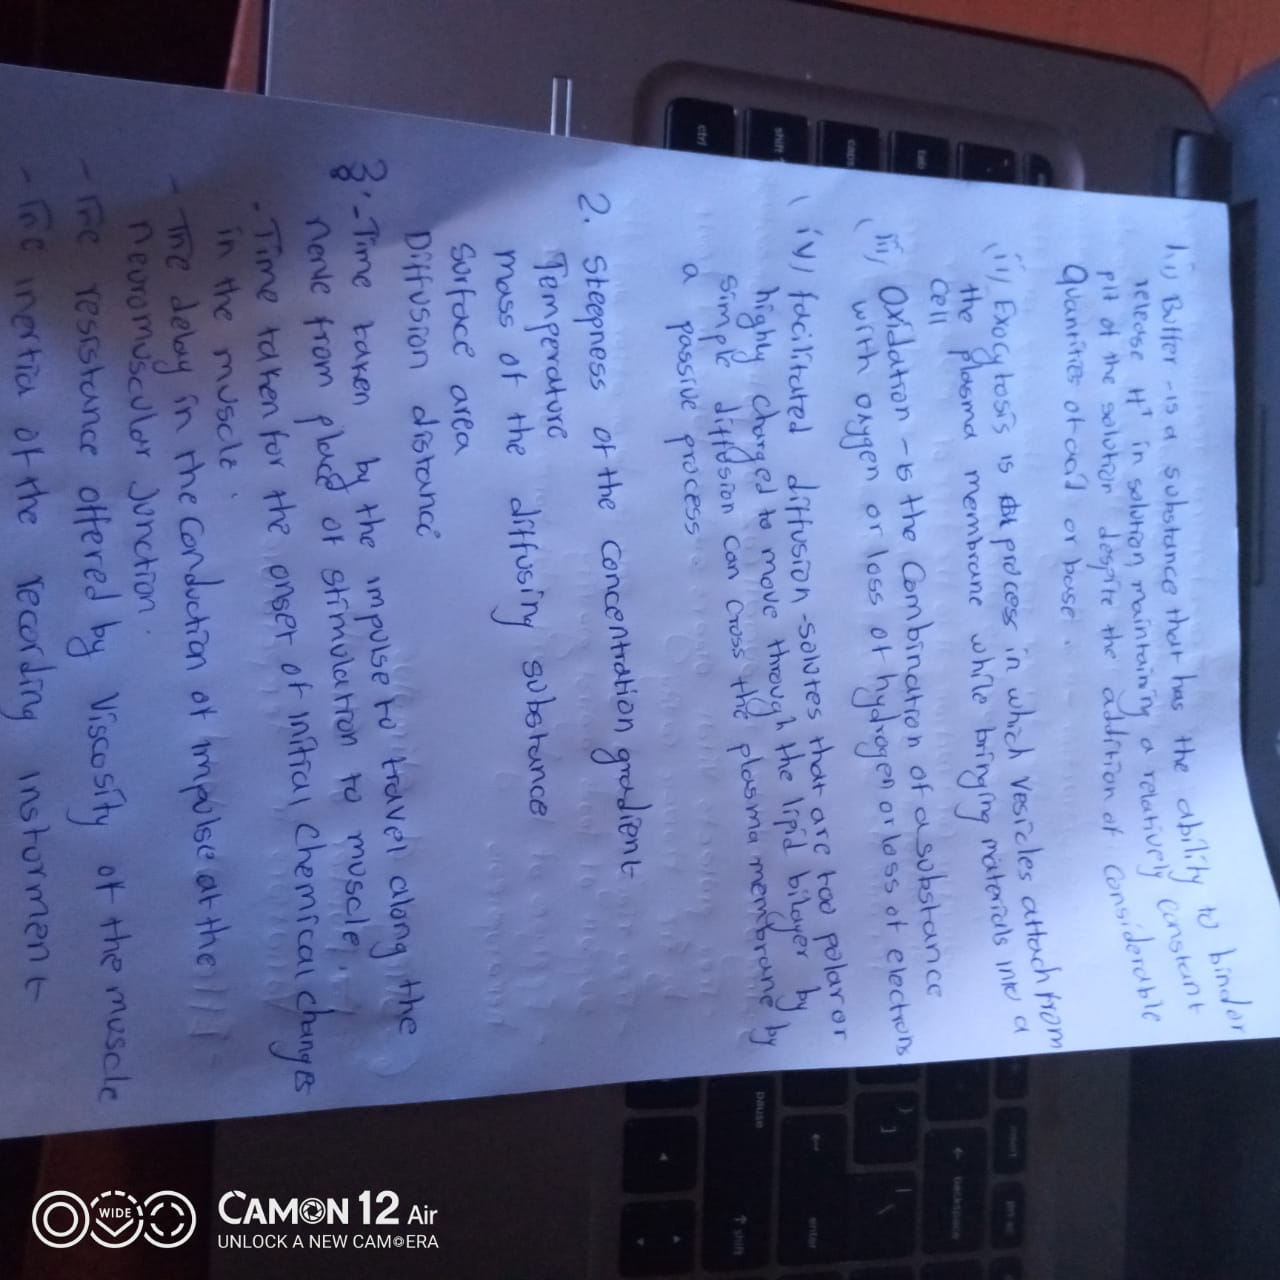 1. i) Buffer - is a substance that has the ability to bind or
release H+ in solution, maintaining a relatively constant
pH of the solution despite the addition of considerable
Quantities of acid or base.
ii) Exocytosis is process in which vesicles attach from
the plasma membrane while bringing materials into a
cell
iii) Oxidation - is the Combination of a substance
with oxygen or loss of hydrogen or loss of electrons
iv) facilitated diffusion - solutes that are too polar or
highly charged to move through the lipid bilayer by
simple diffusion can cross the plasma membrane by
a passive process
2. Steepness of the concentration gradient
Temperature
mass of the diffusing substance
Surface area
Diffusion distance
3. - Time taken by the impulse to travel along the
nerve from place of stimulation to muscle.
- Time taken for the onset of initial chemical changes
in the muscle.
- The delay in the conduction of impulse at the
neuromuscular junction.
- The resistance offered by viscosity of the muscle
- The inertia of the recording insturment
ctrl
shift
caps
tab
pause
enter
shift
backspace
insert
prt sc
WIDE
CAMON 12 Air
UNLOCK A NEW CAMERA